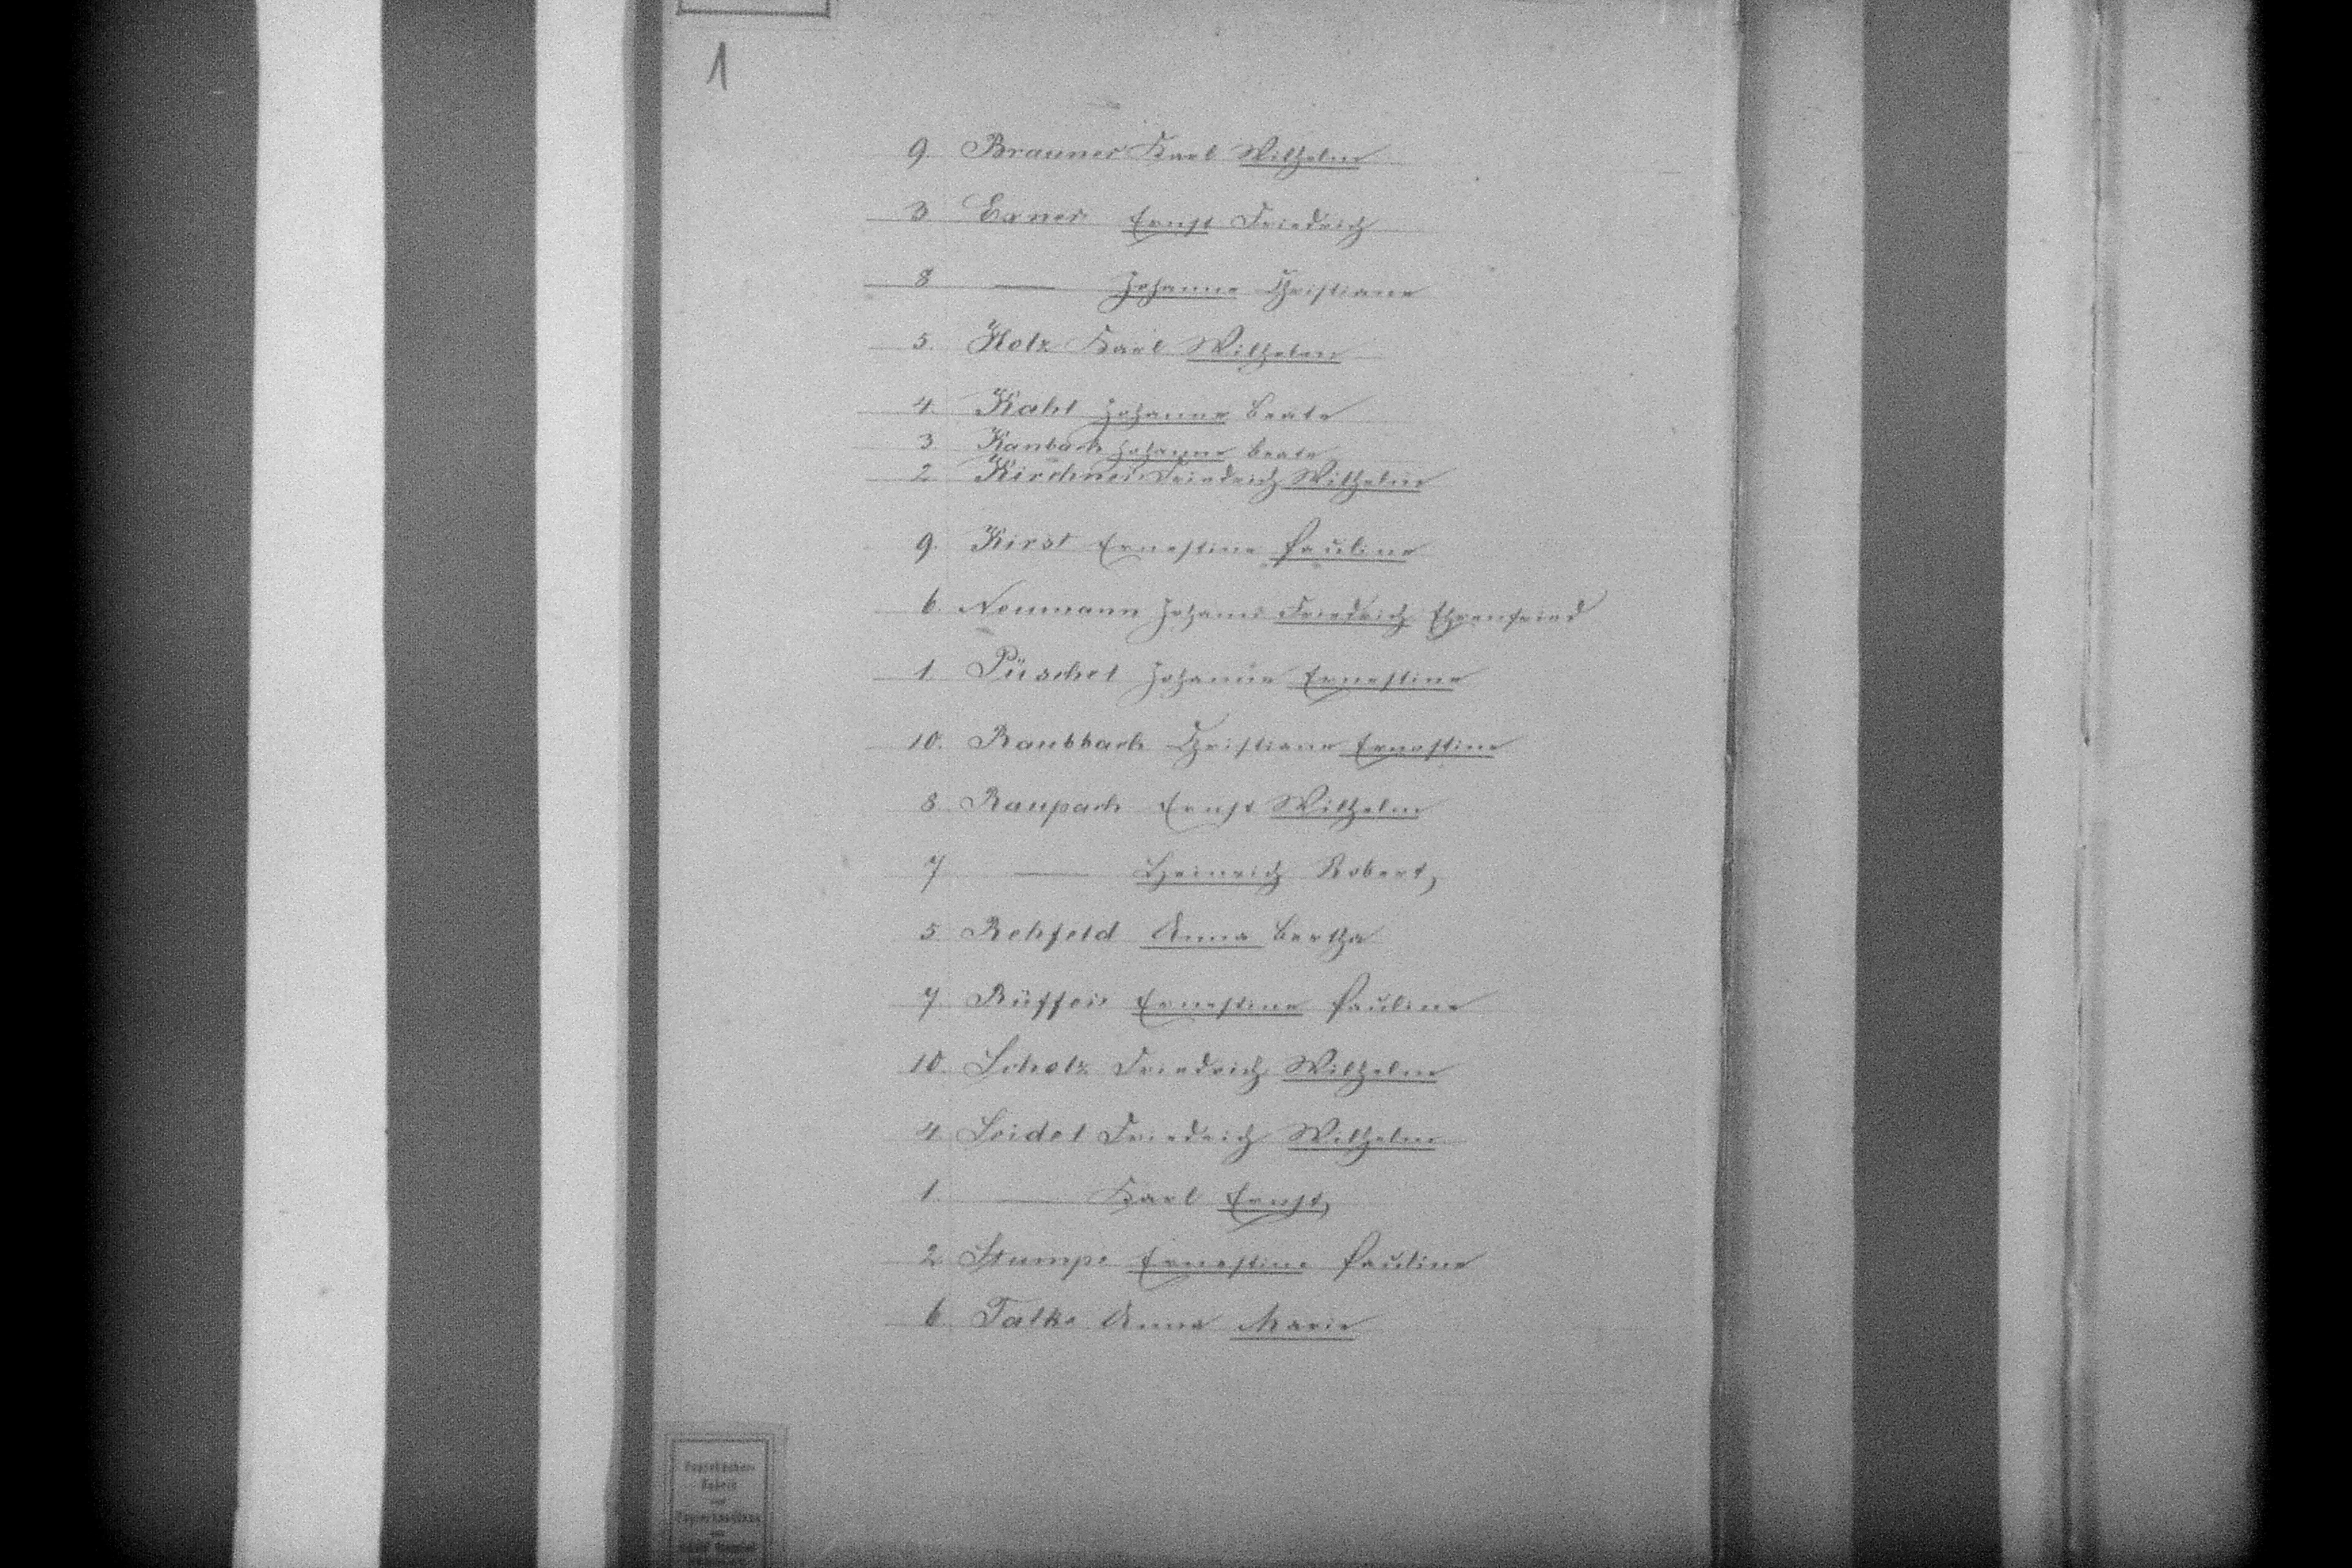 1
9. Brauner Karl Wilhelm
3 Exner Ernst Friedrich
8 — Johanne Christiane
5. Holz Karl Wilhelm
4. Kahl Johanne Beate
3. Kambach Johanne Beate
2 Kirchner Friedrich Wilhelm
9. Kirst Ernestine Pauline
6. Neumann Johann Friedrich Ehrenfried
1. Püschel Johanne Ernestine
10. Raubbach Christiane Ernestine
8. Raupach Ernst Wilhelm
7 — Heinrich Robert,
5 Rehfeld Anna Bertha
7. Rüffer Ernestine Pauline
10. Scholz Friedrich Wilhelm
4. Seidel Friedrich Wilhelm
1. — Karl Ernst,
2 Stumpe Ernestine Pauline
6. Talke Anna Marie
Fabrik